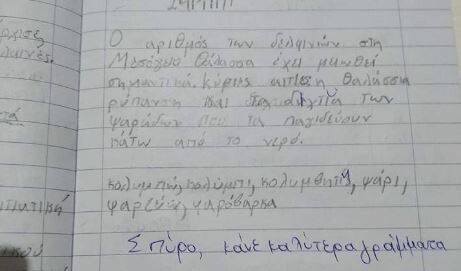 Ο αριθμός των δελφινιών στη
Μεσόγειο θάλασσα έχει μειωθεί
σημαντικά. Κύρια αιτία η θαλάσσια
ρύπανση και τα δίχτυα των
ψαράδων που τα παγιδεύουν
κάτω από το νερό.
κολυμπώ, κολύμπι, κολυμβητής, ψάρι,
ψαρεύω, ψαρόβαρκα
Σπύρο, κάνε καλύτερα γράμματα